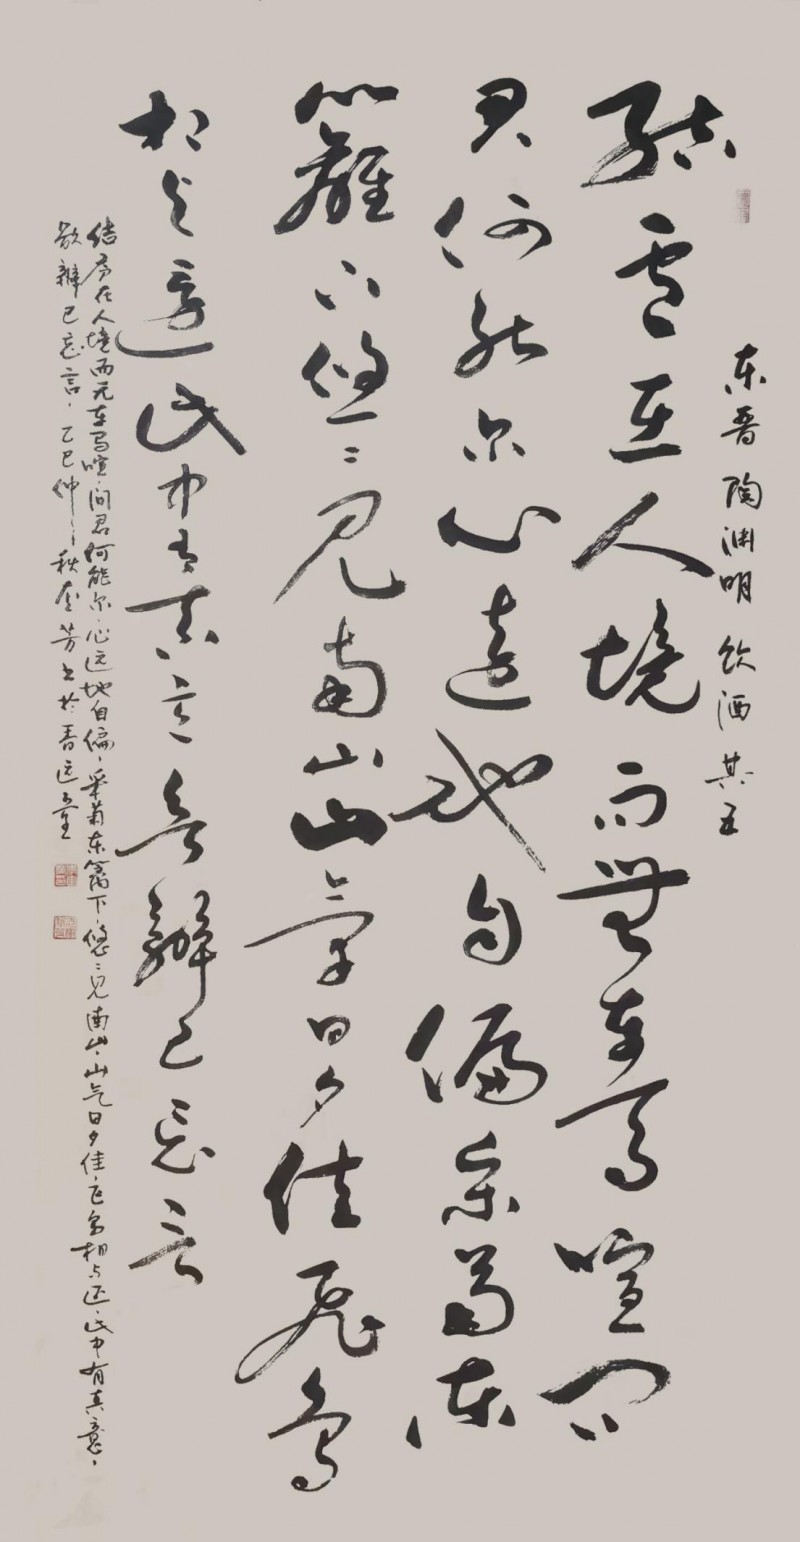 东晋陶渊明饮酒其五
结庐在人境而無车馬喧问
君何能尔心遠地自偏采菊东
籬下悠々见南山山氣日夕佳飛鳥
相与還此中有真意欲辨已忘言
结庐在人境而无车马喧、问君何能尔、心远地自偏、采菊东篱下、悠々见南山、山气日夕佳、飞鸟相与还、此中有真意、
欲辨已忘言、乙巳仲秋金芳书於香远堂